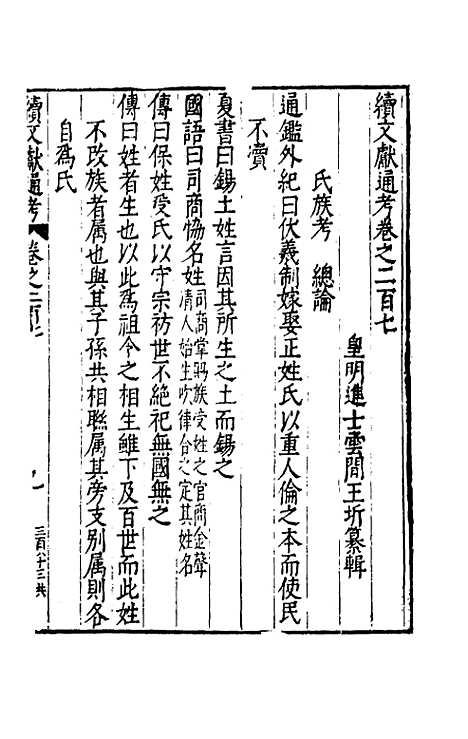 續文獻通考卷之二百七
皇明進士雲間王圻纂輯
氏族考　總論
通鑑外紀曰伏羲制嫁娶正姓氏以重人倫之本而使民
不瀆
夏書曰錫土姓言因其所生之土而錫之
國語曰司商恊名姓司商掌賜族受姓之官商金聲
清人始生吹律合之定其姓名
傳曰保姓受氏以守宗祊世不絶祀無國無之
傳曰姓者生也以此爲祖令之相生雖下及百世而此姓
不改族者属也與其子孫共相聯属其旁支别属則各
自爲氏
續文獻通考
卷之二百七